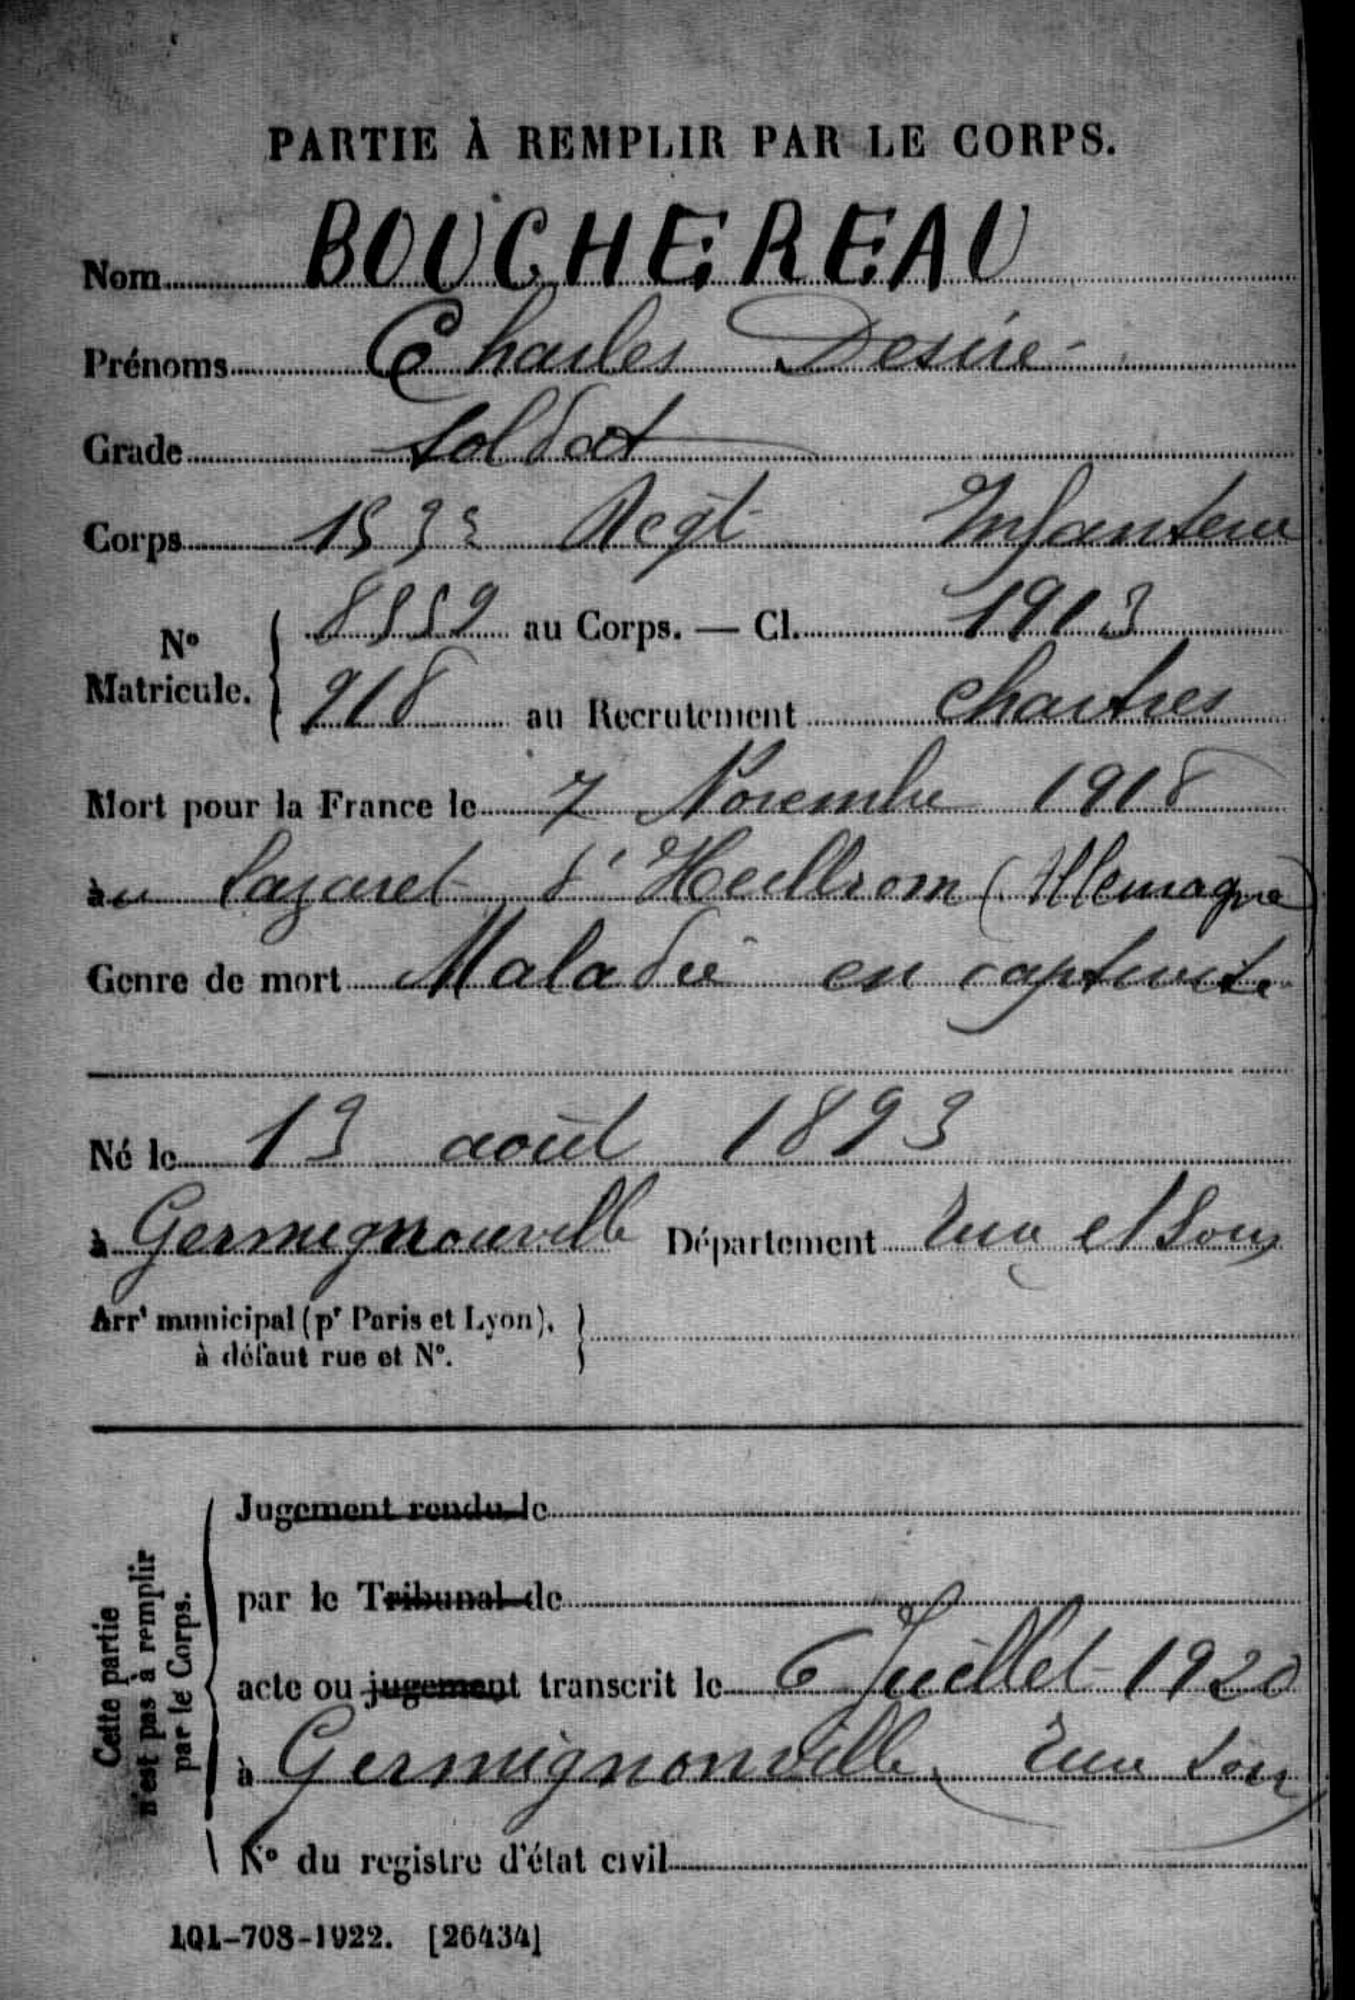 PARTIE À REMPLIR PAR LE CORPS.
Nom BOUCHEREAU
Prénoms Charles Desire
Grade Soldat
Corps 153e Regt Infanterie
No Matricule. 8559 au Corps. — Cl. 1913
918 au Recrutement Chartres
Mort pour la France le 7 Novembre 1918
au Lazaret d'Heilbronn (Allemagne)
Genre de mort Maladie en captivité
Né le 13 août 1893
à Germignonville Département Eure et Loir
Arrt municipal (pr Paris et Lyon),
à défaut rue et No.
Cette partie
n'est pas à remplir
par le Corps.
Jugement rendu le
par le Tribunal de
acte ou jugement transcrit le 6 Juillet 1920
à Germignonville Eure Loir
No du registre d'état civil
101-708-1922. [26434]